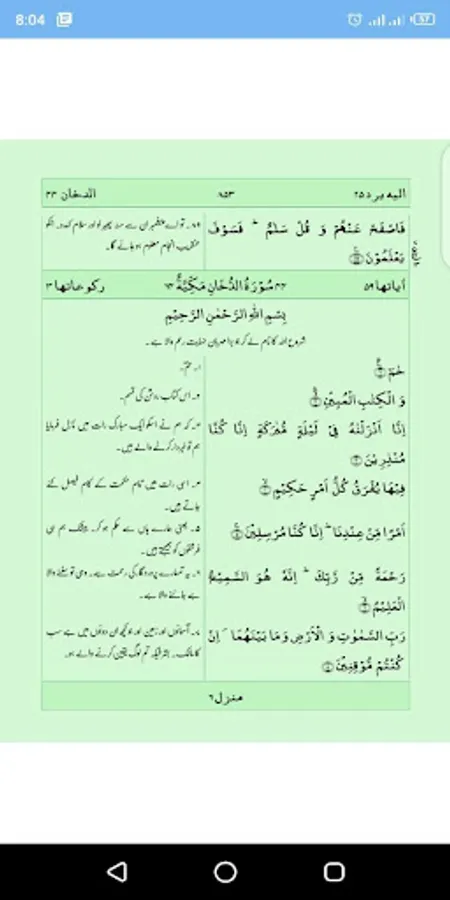 8:04
57
الیه یرد ۲۵ ۸۵۳ الدخان ۴۴
فَاصْفَحْ عَنْهُمْ وَ قُلْ سَلٰمٌ ؕ فَسَوْفَ
یَعْلَمُوْنَ ۸۹
۸۹۔ تو اے پیغمبر ان سے منہ پھیر لو اور سلام کہدو۔ انکو
عنقریب انجام معلوم ہو جائے گا۔
اٰیاتها ۵۹ ۴۴ سُوْرَةُ الدُّخَانِ مَكِّیَّةٌ ۶۴ رکوعاتها ۳
بِسْمِ اللّٰهِ الرَّحْمٰنِ الرَّحِیْمِ
شروع اللہ کا نام لے کر جو بڑا مہربان نہایت رحم والا ہے۔
حٰمٓ ۱
۱۔ حٰم۔
وَ الْكِتٰبِ الْمُبِیْنِ ۲
۲۔ اس کتاب روشن کی قسم۔
اِنَّاۤ اَنْزَلْنٰهُ فِیْ لَیْلَةٍ مُّبٰرَكَةٍ اِنَّا كُنَّا
مُنْذِرِیْنَ ۳
۳۔ کہ ہم نے اسکو ایک مبارک رات میں نازل فرمایا
ہم تو خبردار کرنے والے ہیں۔
فِیْهَا یُفْرَقُ كُلُّ اَمْرٍ حَكِیْمٍ ۴
۴۔ اسی رات میں تمام حکمت کے کام فیصل کئے
جاتے ہیں۔
اَمْرًا مِّنْ عِنْدِنَا ؕ اِنَّا كُنَّا مُرْسِلِیْنَ ۵
۵۔ یعنی ہمارے ہاں سے حکم ہو کر۔ بیشک ہم ہی
فرشتوں کو بھیجتے ہیں۔
رَحْمَةً مِّنْ رَّبِّكَ ؕ اِنَّهٗ هُوَ السَّمِیْعُ
الْعَلِیْمُ ۶
۶۔ یہ تمہارے پروردگار کی رحمت ہے۔ وہی تو سننے والا
ہے جاننے والا ہے۔
رَبِّ السَّمٰوٰتِ وَ الْاَرْضِ وَ مَا بَیْنَهُمَا ۘ اِنْ
كُنْتُمْ مُّوْقِنِیْنَ ۷
۷۔ آسمانوں اور زمین اور جو کچھ ان دونوں میں ہے سب
کا مالک۔ بشرطیکہ تم لوگ یقین کرنے والے ہو۔
منزل ۶